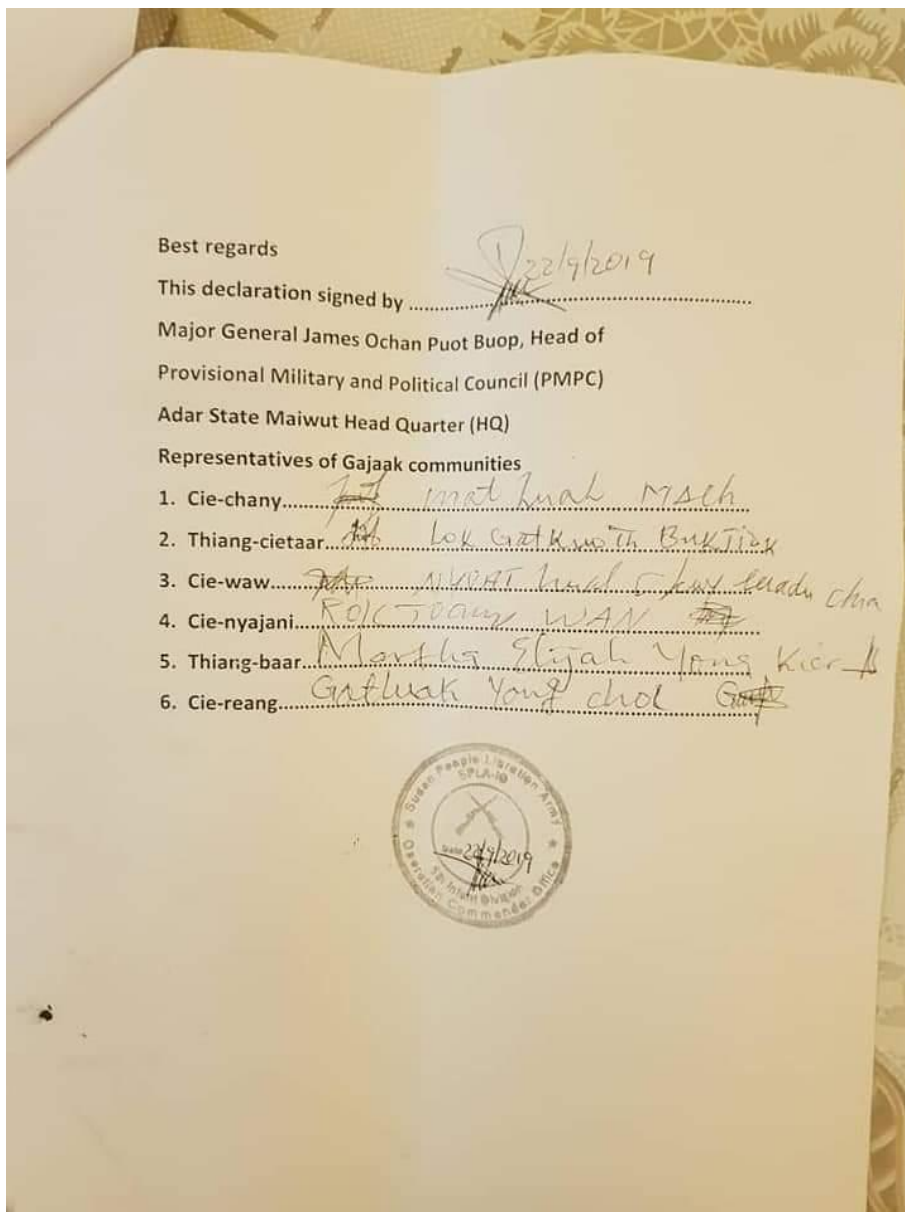 Best regards
22/9/2019
This declaration signed by ........................................................
Major General James Ochan Puot Buop, Head of
Provisional Military and Political Council (PMPC)
Adar State Maiwut Head Quarter (HQ)
Representatives of Gajaak communities
1. Cie-chany........
2. Thiang-cietaar........ Lok Gatkuoth
3. Cie-waw........
4. Cie-nyajani........ WAN
5. Thiang-baar........ Martha Elijah Yong
6. Cie-reang........ Gatluak Yong chol
Sudan People Libration Army
SPLA-IO
Date 22/9/2019
Division
Operation Commander Office